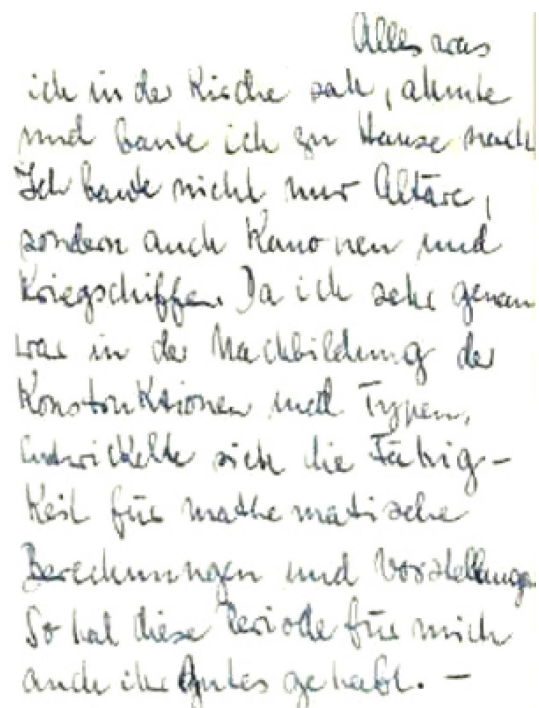 Alles was
ich in der Kirche sah, ahmte
und baute ich zu Hause nach
Ich baute nicht nur Altäre,
sondern auch Kanonen und
Kriegschiffe. Da ich sehr genau
war in der Nachbildung der
Konstruktionen und Typen,
entwickelte sich die Fähig-
keit für mathematische
Berechnungen und Vorstellungen
So hat diese Periode für mich
auch ihr Gutes gehabt. —